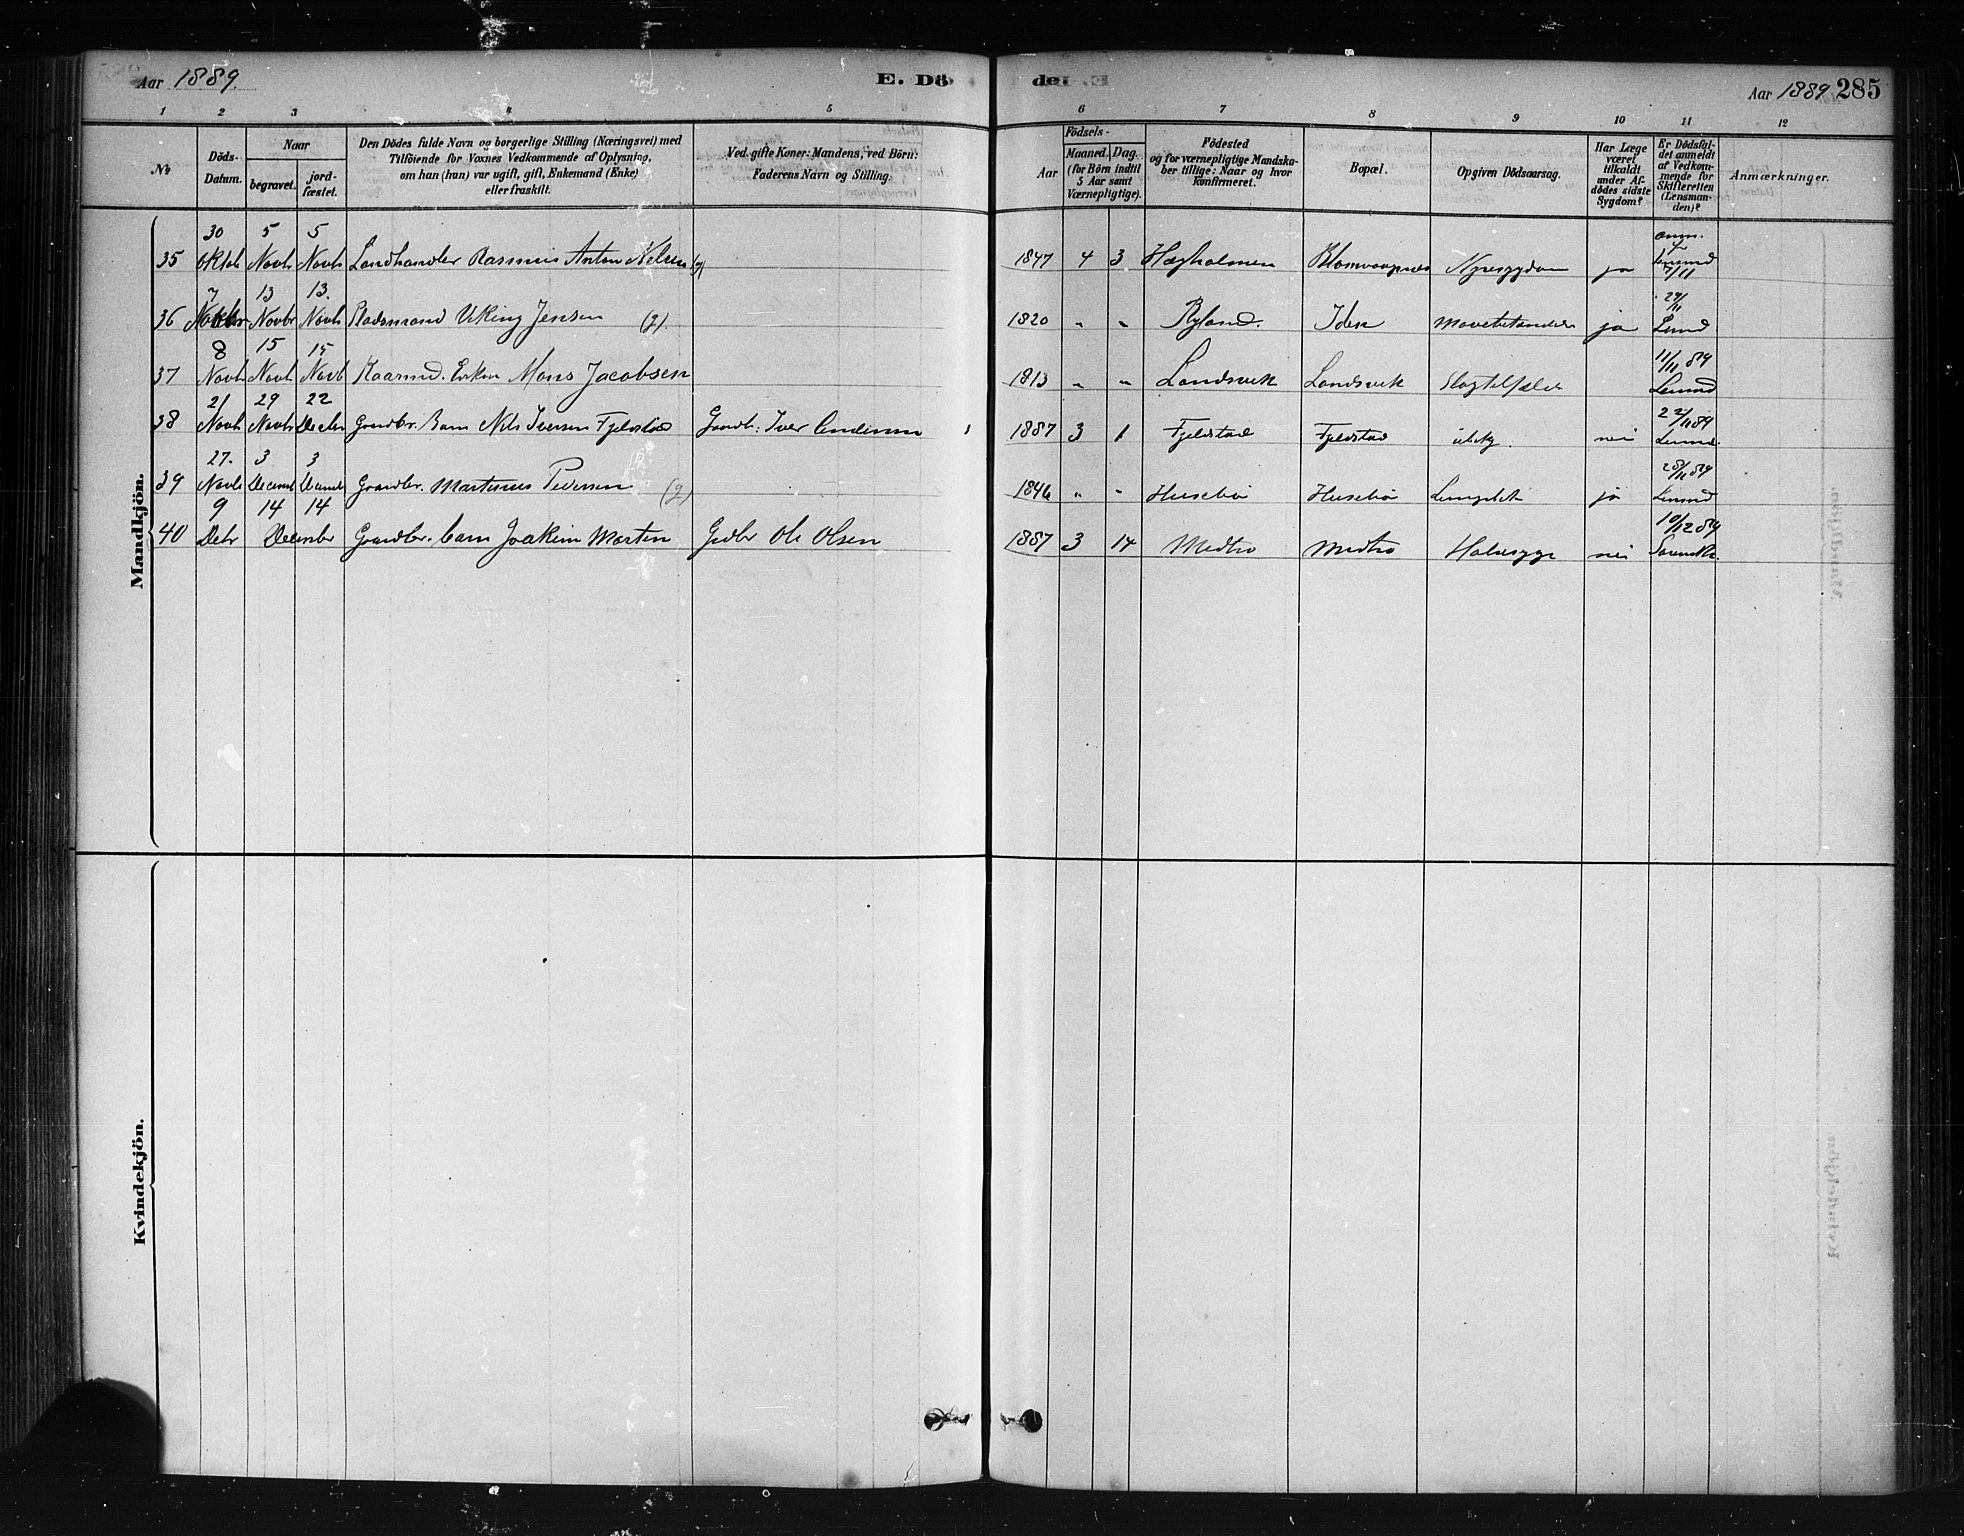 Aar 1889. E. Dö
de. Aar 1889 285
1 2 3 4 5 6 7 8 9 10 11 12
№
Döds-
Datum.
Naar
begravet.
jord-
fæstet.
Den Dödes fulde Navn og borgerlige Stilling (Næringsvei) med
Tilföiende for Voxnes Vedkommende af Oplysning,
om han (hun) var ugift, gift, Enkemand (Enke)
eller fraskilt.
Ved gifte Koner: Mandens, ved Börn:
Faderens Navn og Stilling.
Födsels-
Aar
Maaned.
Dag.
(for Börn indtil
5 Aar samt
Værnepligtige).
Födested
og for værnepligtige Mandska-
ber tillige: Naar og hvor
konfirmeret.
Bopæl.
Opgiven Dödsaarsag.
Har Læge
været
tilkaldt
under Af-
dödes sidste
Sygdom?
Er Dödsfal-
det anmeldt
af Vedkom-
mende for
Skifteretten
(Lensman-
den)?
Anmærkninger.
Mandkjön.
30 5 5 anm.
35 Oktob Novb Novb Landhandler Rasmus Anton Nelsen 1847 4 3 Hægholmen Blomvaagnes Nyresygdom ja 7/11
7 13 13.
36 Novbr Novb Pladsmand Viking Jensen (2) 1820 " " Ryland. Iden ja Lensmd
8 15 15 11/11 89
37 Novb Novb Novb Kaarmd. Mons Jacobsen 1813 " " Landsvik Landsvik Slagtilfælde Lensmd
21 29 22 22/11 89
38 Novb Novb Decbr Gaardbr. Barn Nils Iversen Fjeldstad Gaardb: Iver 1887 3 1 Fjeldstad Fjeldstad nei Lensmd.
27. 3 3 28/11 89
39 Novb Decemb Decemb Gaardbr. Martinus Pedersen (2) 1846 " " Husebö Husebö ja Lensmd
9 14 14 10/12 89
40 Debr December Gaardbr. barn Joakim Martin Gdbr Ole Olsen 1887 3 14 Midtrö Midtrö Halssyge nei
Kvindekjön.